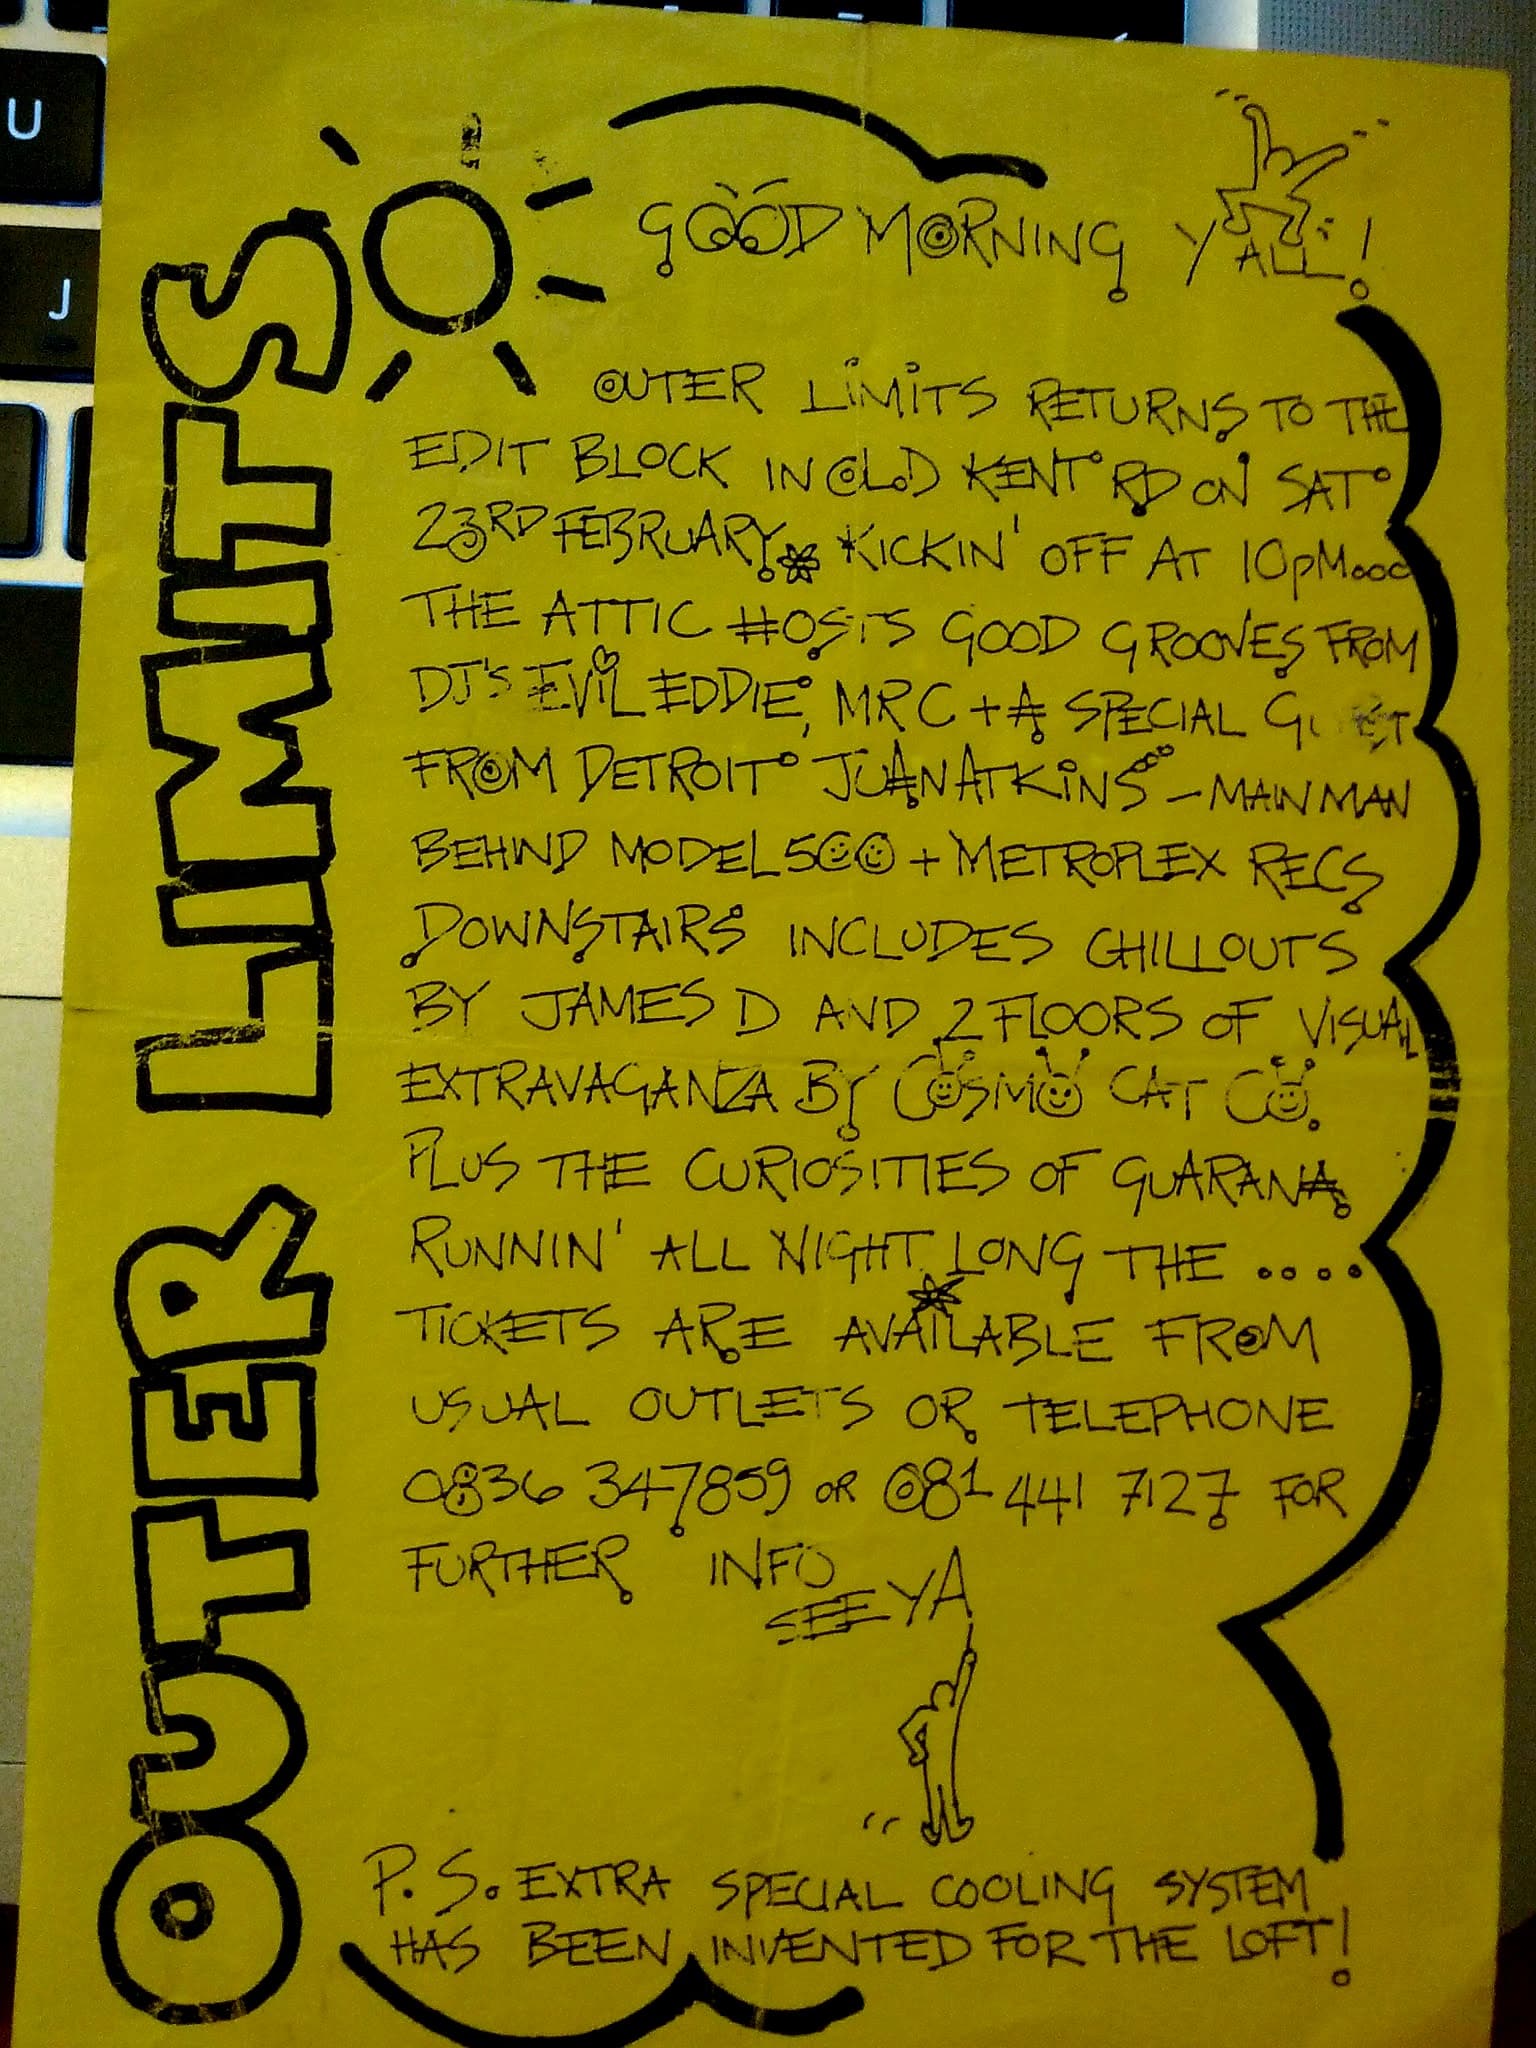 OUTER LIMITS
GOOD MORNING Y'ALL!
OUTER LIMITS RETURNS TO THE
EDIT BLOCK IN OLD KENT RD ON SAT
23RD FEBRUARY. KICKIN' OFF AT 10PM....
THE ATTIC HOSTS GOOD GROOVES FROM
DJ'S EVIL EDDIE, MR C + A SPECIAL
FROM DETROIT JUAN ATKINS - MAIN MAN
BEHIND MODEL 500 + METROPLEX RECS
DOWNSTAIRS INCLUDES CHILLOUTS
BY JAMES D AND 2 FLOORS OF VISUAL
EXTRAVAGANZA BY COSMO CAT CO.
PLUS THE CURIOSITIES OF GUARANA
RUNNIN' ALL NIGHT LONG THE ....
TICKETS ARE AVAILABLE FROM
USUAL OUTLETS OR TELEPHONE
0836 347859 OR 081 441 7127 FOR
FURTHER INFO
SEE YA
P.S. EXTRA SPECIAL COOLING SYSTEM
HAS BEEN INVENTED FOR THE LOFT!
U
J